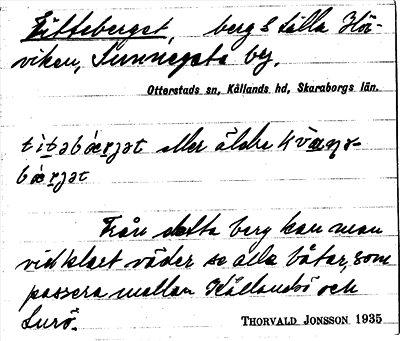 Titteberget, berg S Lilla Hör-
viken, Sunnegata by.
Otterstads sn, Kållands hd, Skaraborgs län.
eller äldre
Från detta berg kan man
vid klart väder se alla båtar, som
passera mellan Kållandsö och
Lurö.
THORVALD JONSSON 1935